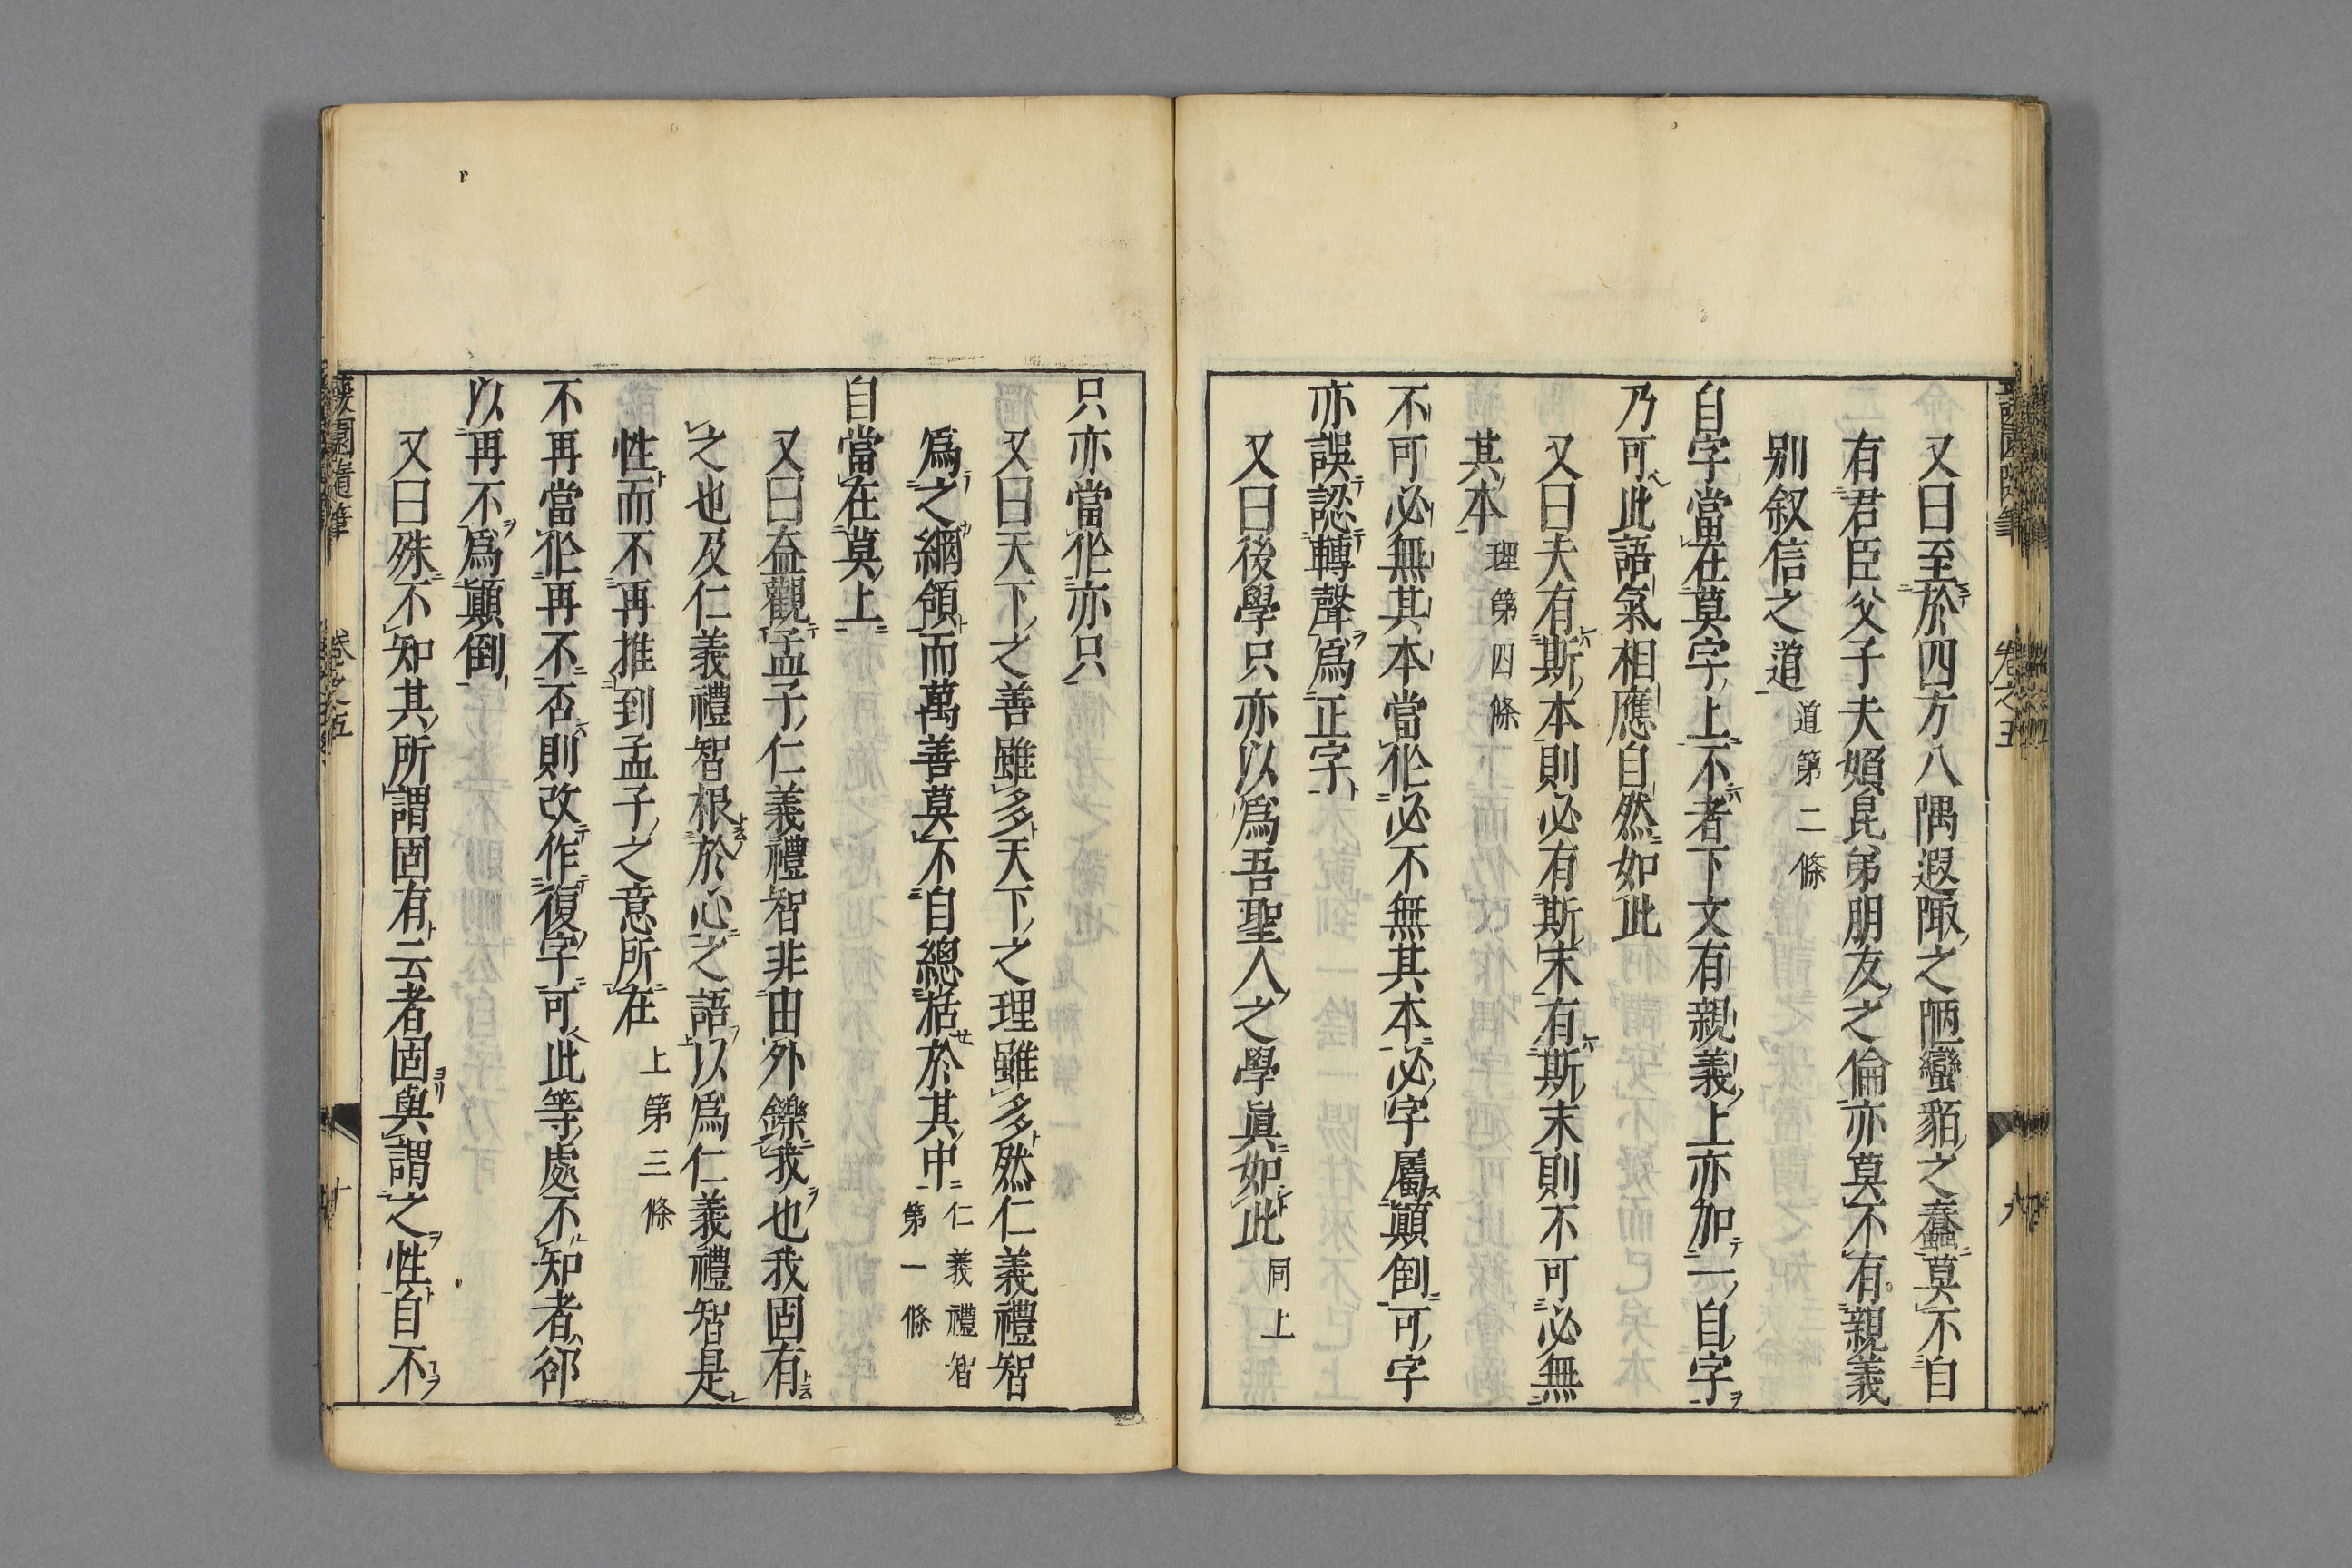 又曰至於四方八隅遐陬之陋蠻貊之蠢莫不自
有君臣父子夫婦昆弟朋友之倫亦莫不有親義
別叙信之道 道第二條
自字當在莫字上不者下文有親義上亦加一自字
乃可此語氣相應自然如此
又曰夫有斯本則必有斯末有斯末則不可必無
其本 理第四條
不可必無其本當作必不無其本必字屬顛倒可字
亦誤認轉聲爲正字
又曰後學只亦以爲吾聖人之學眞如此 同上
只亦當作亦只
又曰天下之善雖多天下之理雖多然仁義禮智
爲之綱領而萬善莫不自總括於其中 仁義禮智第一條
自當在莫上
又曰益觀孟子仁義禮智非由外鑠我也我固有
之也及仁義禮智根於心之語以爲仁義禮智是
性而不再推到孟子之意所在 上第三條
不再當作再不否則改作復字可此等處不知者卻
以再不爲顛倒
又曰殊不知其所謂固有云者固與謂之性自不
蘐園隨筆 卷之五 十
卷之五 九